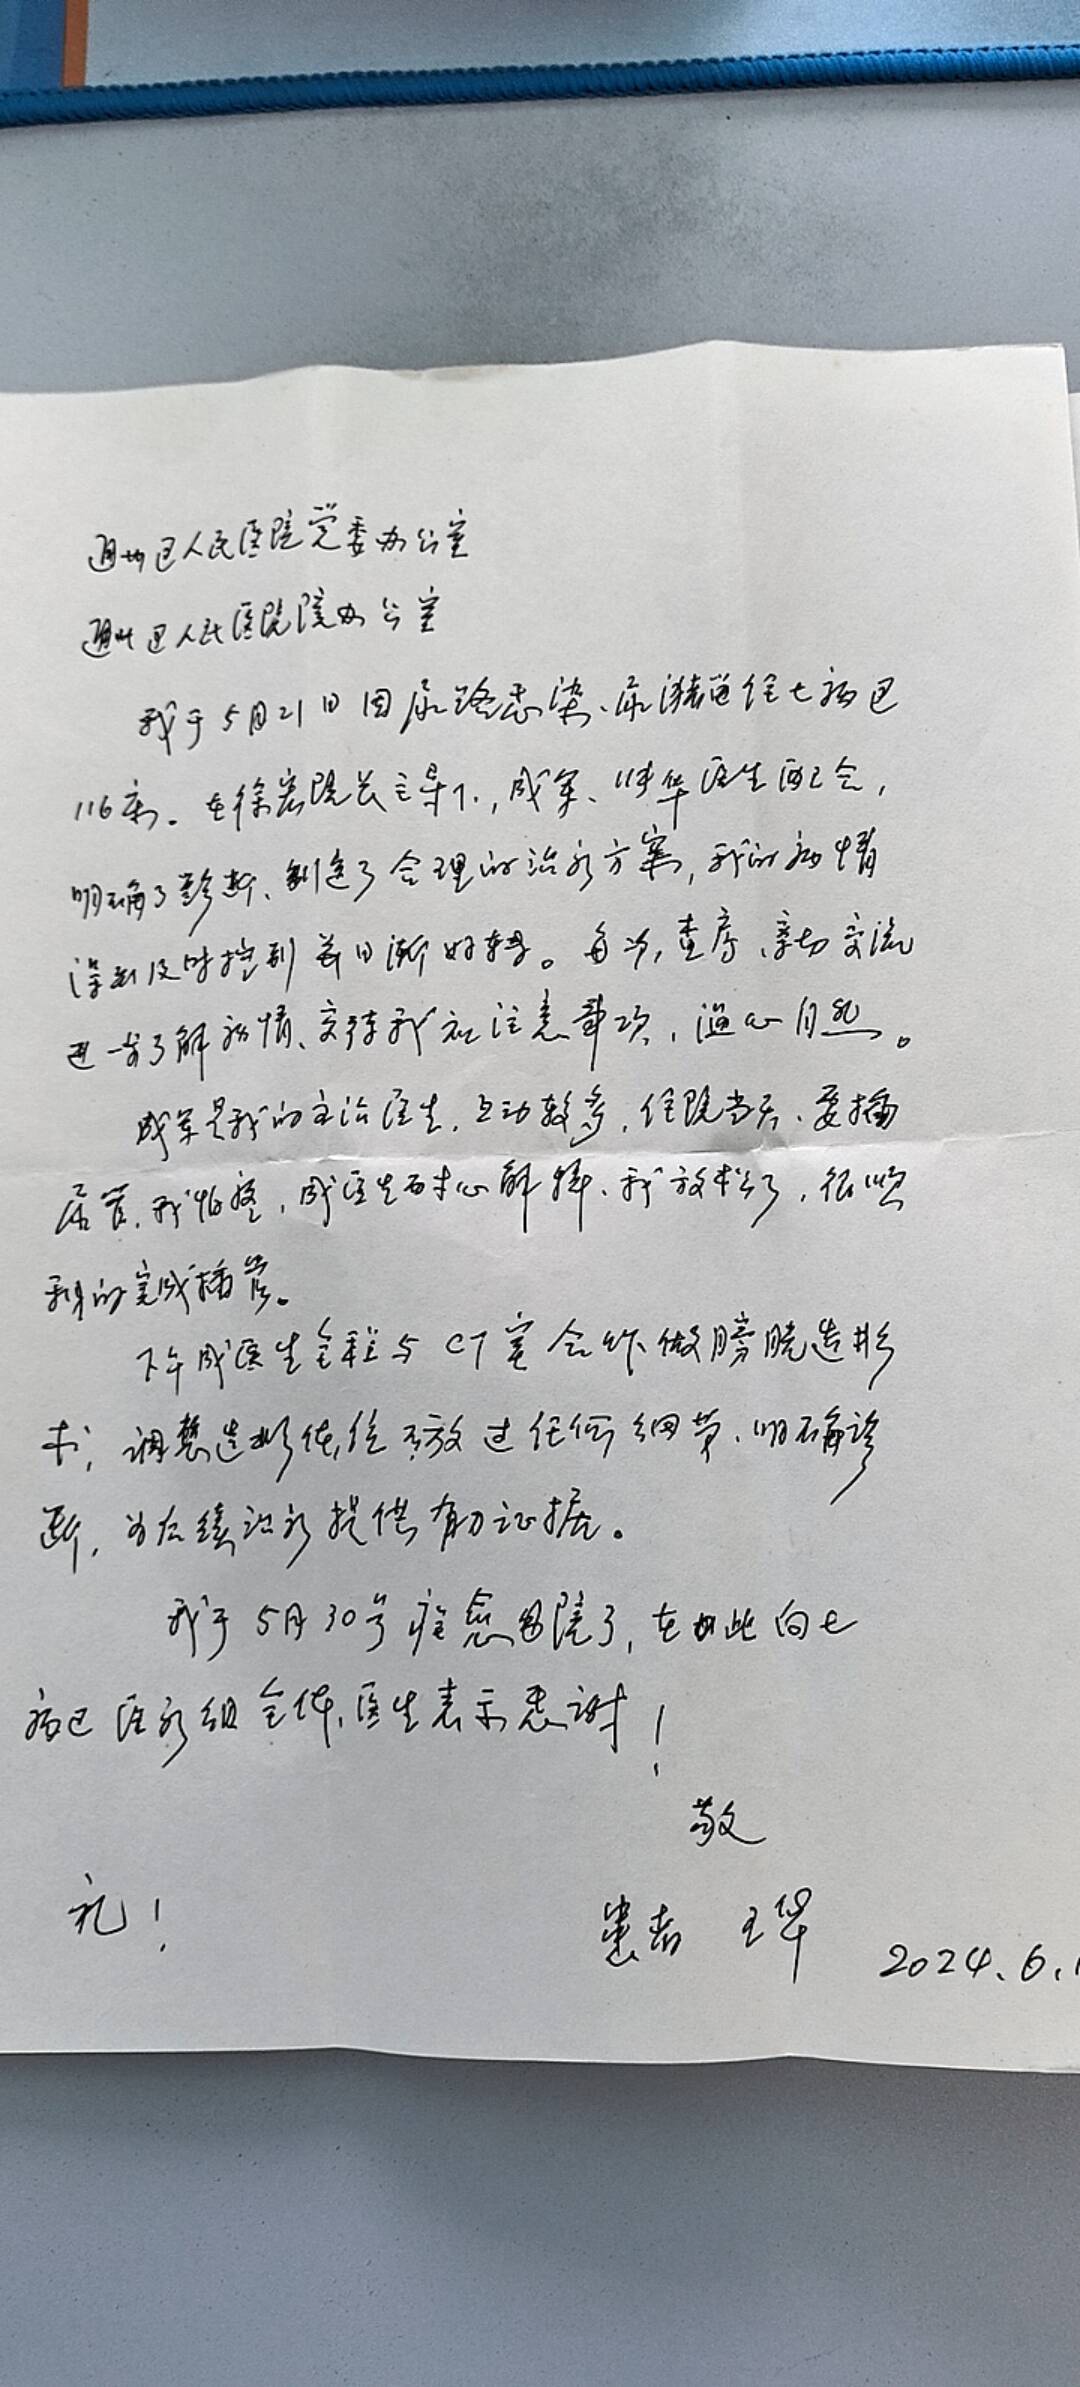 通州区人民医院党委办公室
通州区人民医院院办公室
我于5月21日因尿路感染、尿潴留住七病区
116床。在徐宏院长主导下,成军、华医生配合,
明确了诊断、制定了合理的治疗方案,我的病情
得到及时控制并日渐好转。每次,查房,亲切交流
进一步了解病情、交待我和注意事项,温心自然。
成军是我的主治医生,互动较多,住院当天、要插
尿管,我怕疼,成医生耐心解释、我放松了,很顺
利的完成插管。
下午成医生全程与CT室合作做膀胱造影
术,调整造影体位不放过任何细节、明确诊
断,为后续治疗提供有力证据。
我于5月30号痊愈出院了,在此向七
病区医疗组全体医生表示感谢!
敬
礼!
患者 王华 2024.6.